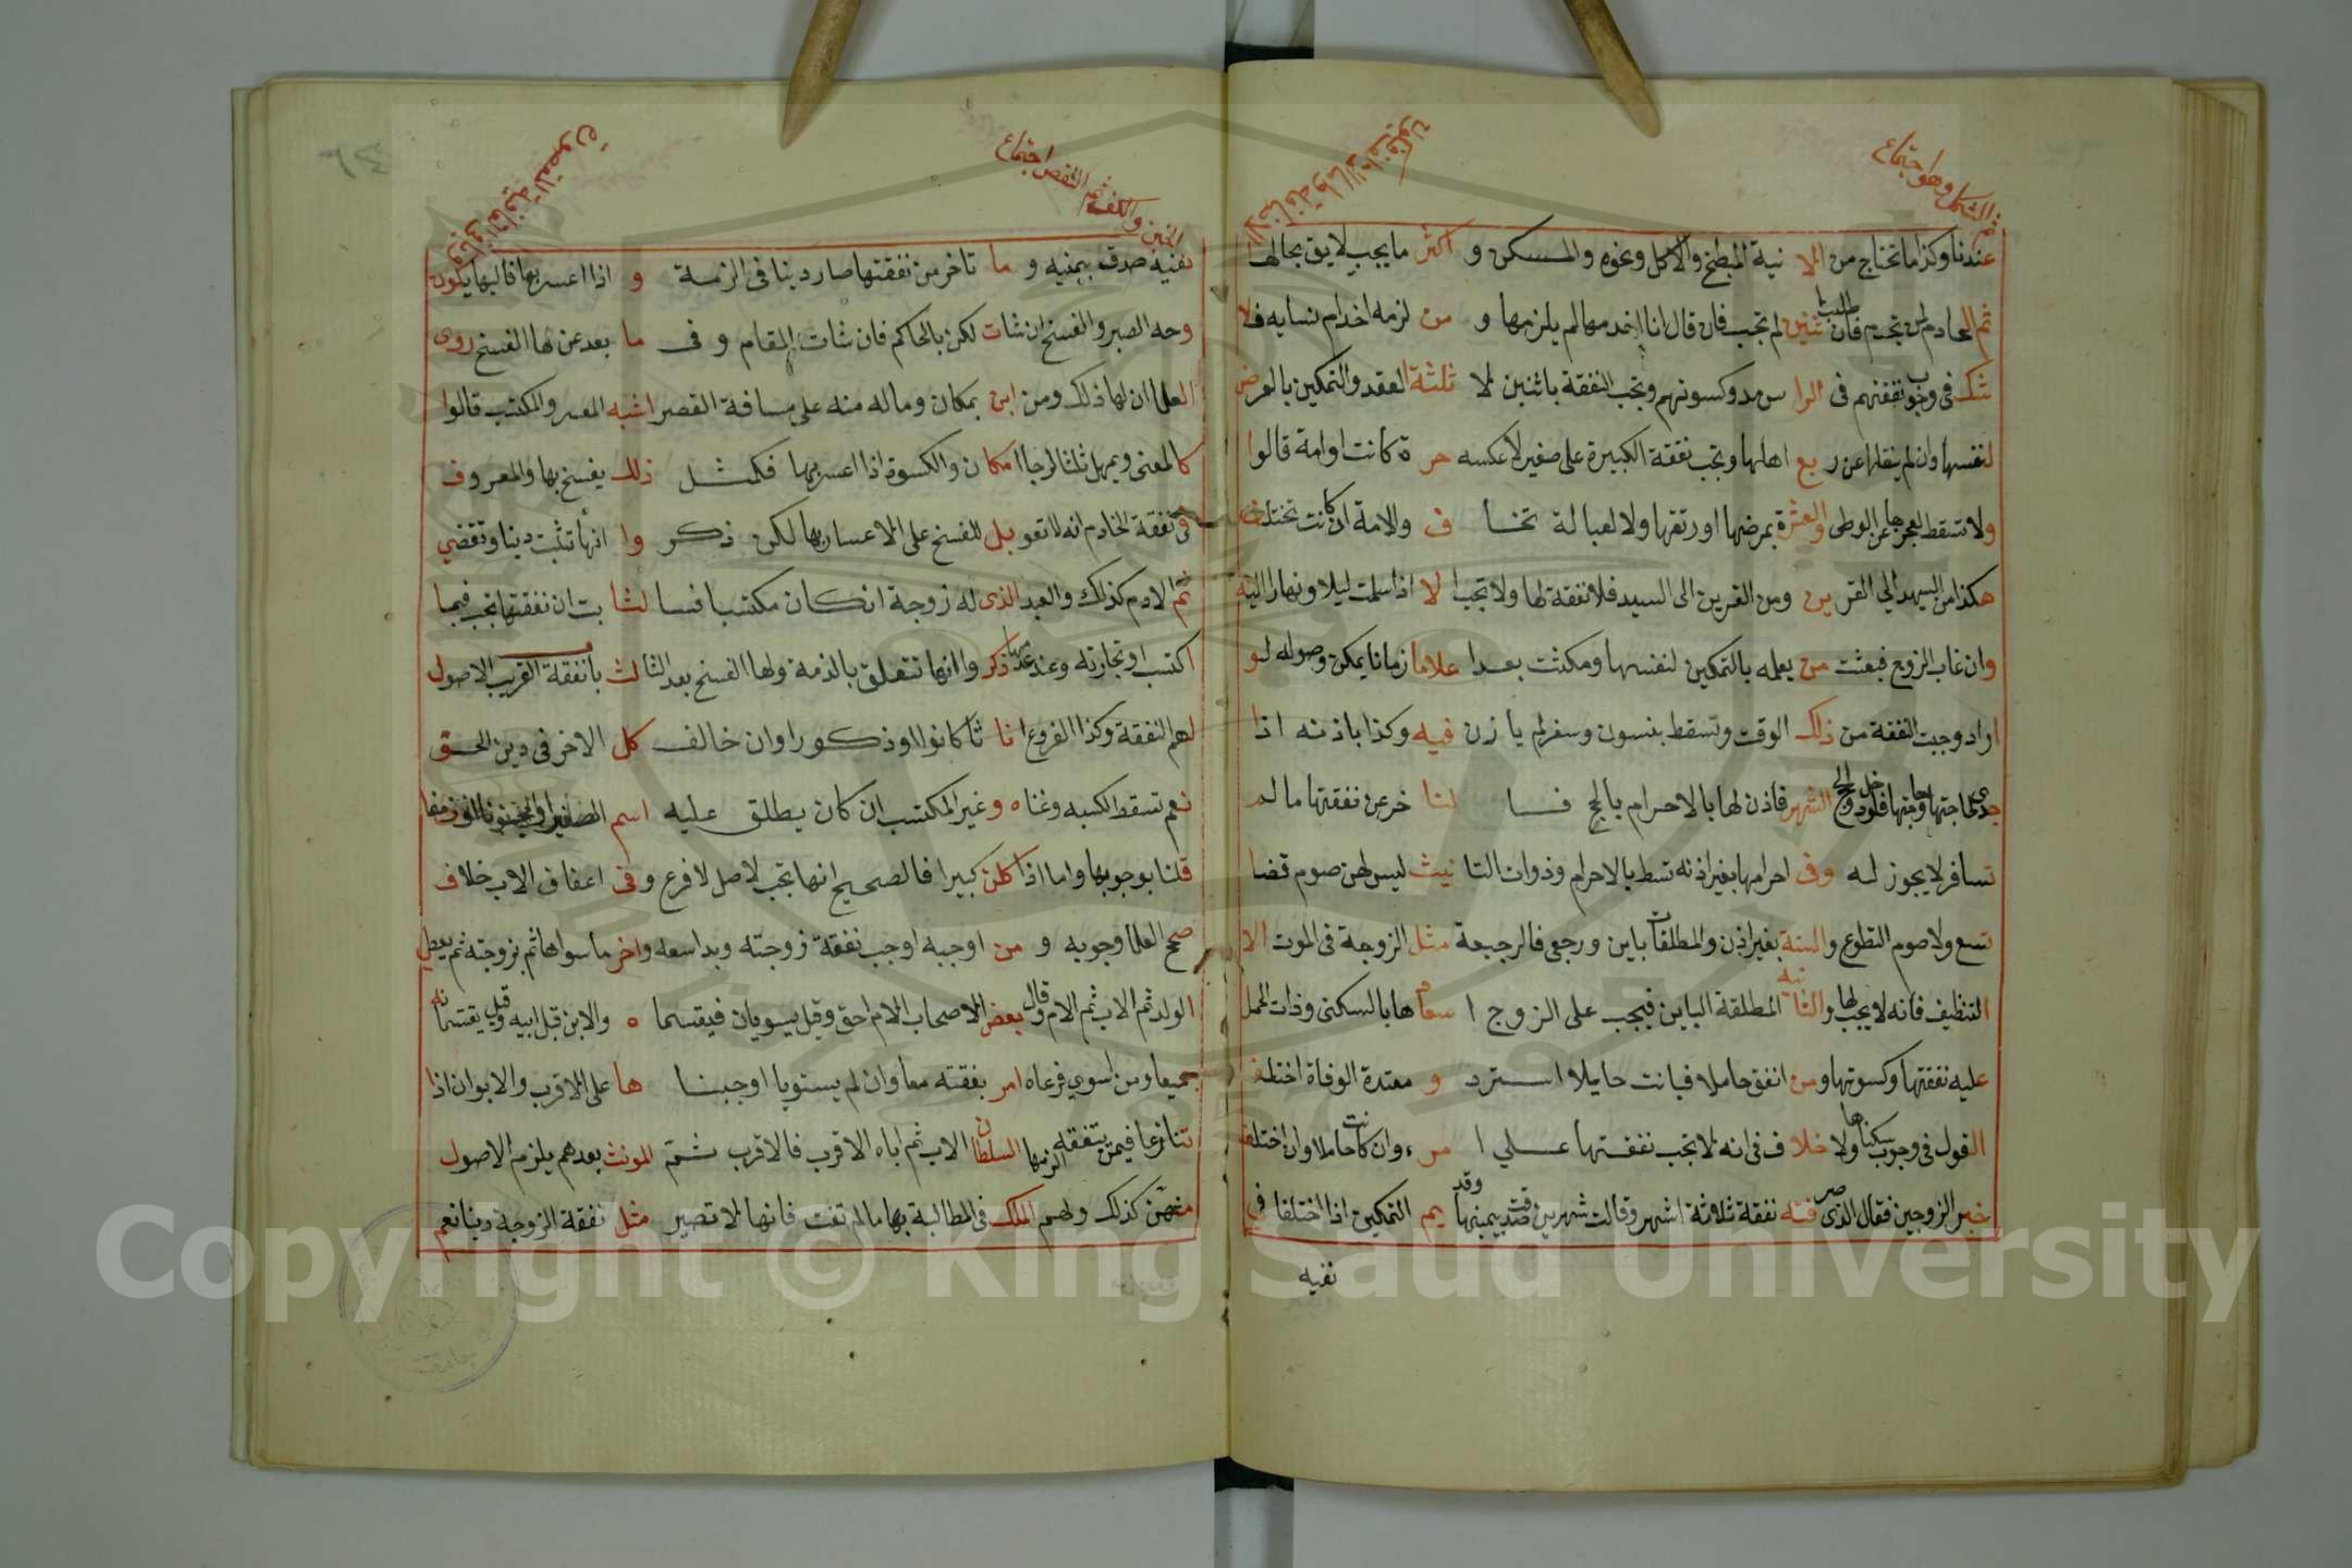 ثم الشكل وهو اجتماع
عندنا وكذا ما تحتاج من الا نية المطبخ والاكل ونحوه والمسكن و اكثر ما يجب لايق بحالها
ثم الخادم لمن تخدم فان طلبا ثنين لم تجب فان قال انا اخدمها لم يلزمها و من لزمه اخدام نسايه فلا
شك في وجوب نفقتهم في الرا س مد وكسوتهم وتجب النفقة باثنين لا ثلثة العقد والتمكين بالعرض
لنفسها وان لم ينقلها عن ر بع اهلها وتجب نفقة الكبيرة على صغير لا عكسه حر ة كانت او امة قالوا
ولا تسقط لعجزها عن الوطى والعشرة بمرضها او رتقها ولا لعبا لة تخا ف والامة ان كانت تختلف
هكذا من السيد الي القر ين ومن القرين الى السيد فلا نفقة لها ولا تجب ا لا اذا سلمت ليلا ونهارا اليه
وان غاب الزوج فبعثت من يعلمه بالتمكين لنفسها ومكثت بعد ا علاما زمانا يمكن وصوله لو
اراد وجبت النفقة من ذلك الوقت وتسقط بنسون وسفر لم يا زن فيه وكذا باذنه اذا
الشهر فاذن لها بالاحرام بالحج فا لنا خرعن نفقتها ما لم
تسافر لا يجوز له وفى احرامها بغير اذنه تسط بالاحرام وذوات التا نيث ليس لهن صوم قضا
تسع ولا صوم التطوع والسنة بغير اذن والمطلقات باين ورجعى فالرجعة مثل الزوجة في الموت الا
التنظيف فانه لا يجب لها والثا نيه المطلقة الباين فيجب على الزوج ا سعا مها بالسكنى وذات الحمل
عليه نفقتها وكسوتها ومن انفق حاملا فبانت حايلا استرد و معتدة الوفاة اختلف
القول في وجوب سكناها ولا خلاف في انه لا تجب نفقتها على ا مرء وان كانت حاملا وان اختلف
خبر الزوجين فقال الذى صر فته نفقة ثلاثة اشهر وقالت شهرين صدقت بيمينها وقد يم التمكين اذا اختلفا في
نفيه
ثم النقص اجتماع
الخبن والكف
نفيه صدق بيمنيه و ما تاخر من نفقتها صار دينا فى الزمة و اذا اعسر بها فاليها يكون
وحه الصبر والفسخ ان شات لكن بالحاكم فان شات المقام و فى ما بعد عن لها الفسخ روى
العلما ان لها ذلك ومن ابن بمكان وماله منه على مسافة القصر اشبه المعسر والمكتب قالوا
كالمعنى ويمهل ثلثا لرجا ا مكان والكسوة اذا اعسر بها فكمثل ذلك يفسخ بها والمعروف
فى نفقة الخادم انه لا تعو يل للفسخ على الاعسار بها لكن ذكر وا انها تثبت دينا وتقضي
ثم الادم كذلك والعبد الذى له زوجة ان كان مكتسبا فسا لثا بت ان نفقتها تجب فيما
اكتسب او تجارته وعند عدمها ذكر وا انها تتعلق بالذمة ولها الفسخ بعد الثا لث باب نفقة القريب الاصول
لهم النفقة وكذا الفروع انا ثا كانوا او ذكورا وان خالف كل الاخر في دين الحق
نعم تسقط الكسبه وغنا ه وغير المكتسب ان كان يطلق عليه اسم
قلنا بوجوبها واما اذا كان كبيرا فالصحيح انها تجب لاصل لا فرع وفى اعفاف الاب خلاف
صحح العلما وجوبه و من اوجبه اوجب نفقة زوجته وبدا سعه واخر ما سواها ثم بزوجته ثم يعطي
الولد ثم الاب ثم الام وقال بعض الاصحاب الام احق وقيل يسويان فيقسما ه والابن قبل ابيه وقيل يقتسمانه
جميعا ومن اسوي فرعاه امر بفقته معا وان لم يستويا اوجبنا ها على الاقرب والابوان اذا
تنازعا فيمن بنفقه الزمها السلطان الاب ثم اباه الاقرب فالاقرب ثم المونث بعدهم يلزم الاصول
منهن كذلك ولهم الملك في المطالبة بها مالم تفت فانها لا تصير مثل نفقة الزوجة دينا نعم
Copyright © King Saud University